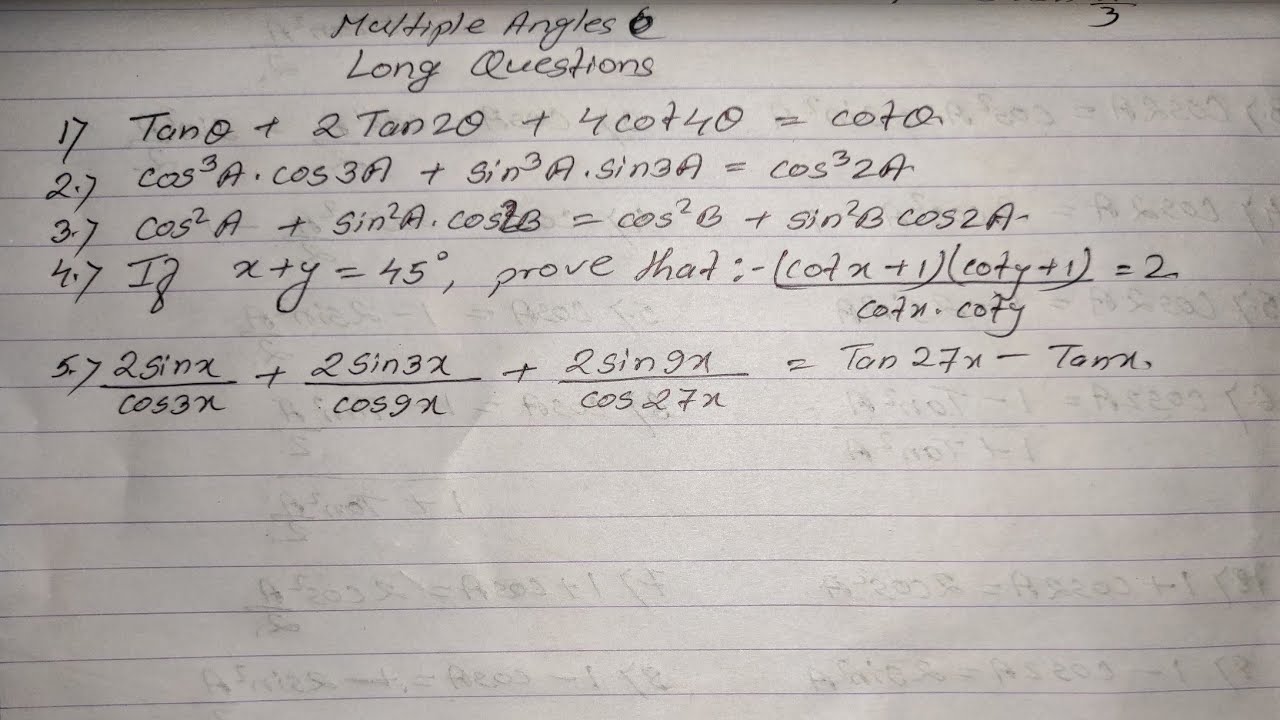 π/3
Multiple Angles
Long Questions
1) Tanθ + 2 Tan2θ + 4cot4θ = cotθ.
2.) cos³A. cos3A + sin³A. sin3A = cos³2A.
3.) cos²A + sin²A. cos2B = cos²B + sin²B cos2A.
4.) If x+y = 45°, prove that :- (cotx+1)(coty+1) / cotx. coty = 2.
5.) 2sinx / cos3x + 2sin3x / cos9x + 2sin9x / cos27x = Tan27x - Tanx.